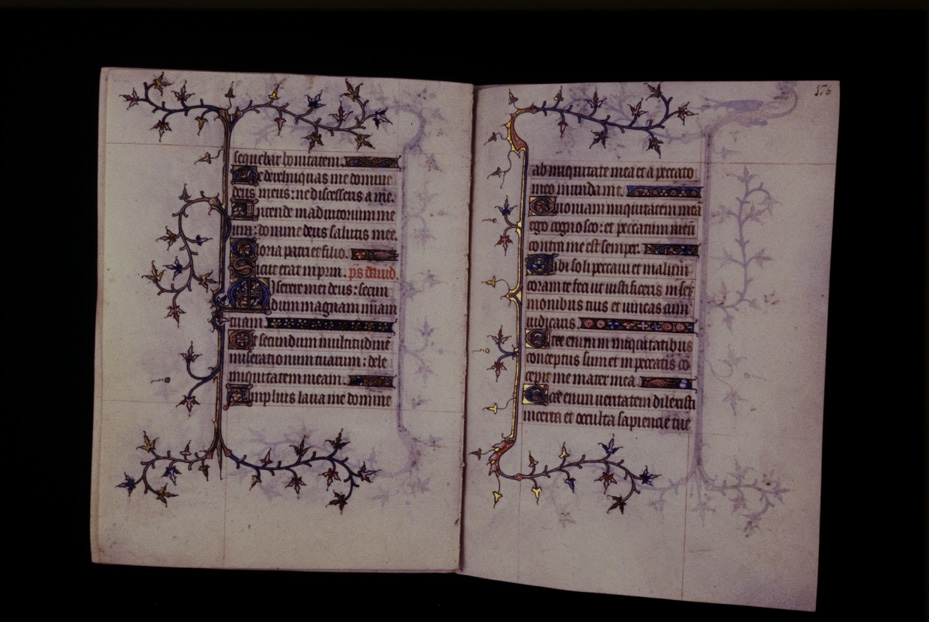 sequebar bonitatem.
Ne derelinquas me domine
deus meus: ne discesseris a me.
Intende in adiutorium me
um: domine deus salutis mee.
Gloria patri et filio.
Sicut erat in prin. ps dauid.
Miserere mei deus: secun
dum magnam miam
tuam.
Et secundum multitudinē
miserationum tuarum: dele
iniquitatem meam.
Amplius laua me domine
176
ab iniquitate mea et a peccato
meo munda me.
Quoniam iniquitatem mea
ego cognosco: et peccatum meū
contra me est semper.
Tibi soli peccaui et malum
coram te feci ut iustificeris in ser
monibus tuis et uincas cum
iudicaris
Ecce enim iniquitatibus
conceptus sum et in peccatis co
cepit me mater mea.
Ecce enim ueritatem dilexisti
incerta et occulta sapiencie tue